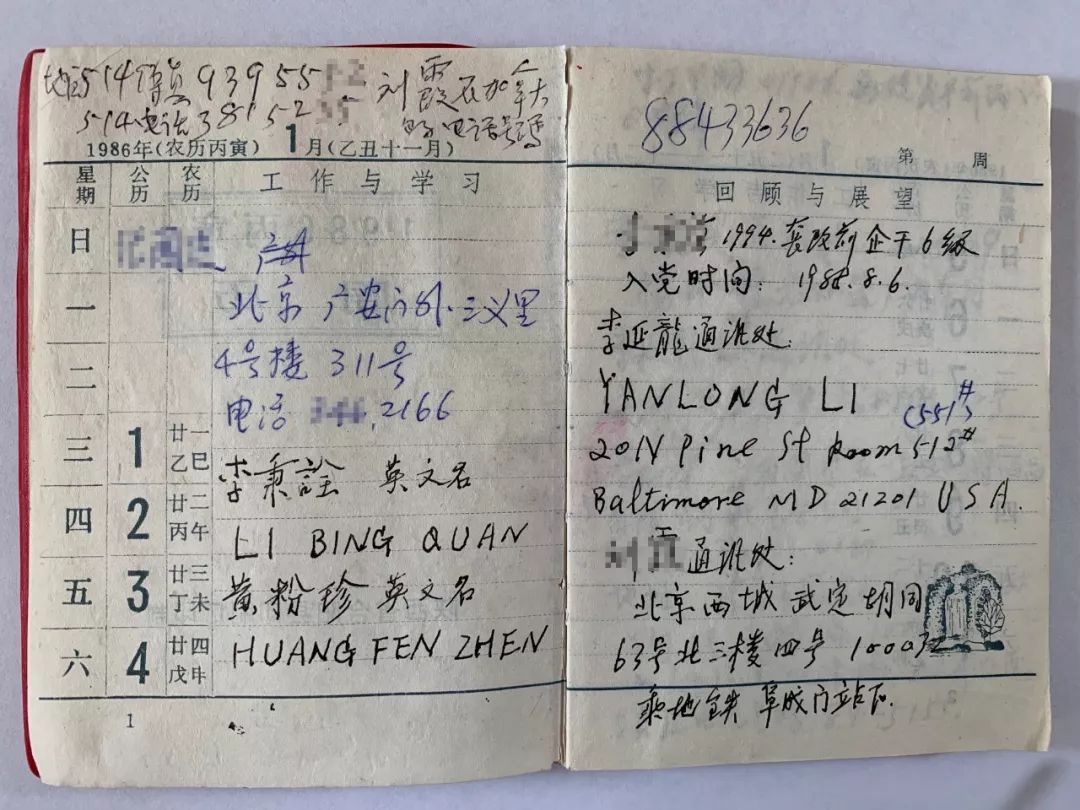 514传真93955
514电话38152
刘霞在加拿大
的电话号码
1986年(农历丙寅) 1月(乙丑十一月)
星期 公历 农历 工作与学习
日
一 北京广安门外.三义里
二 4号楼 311号
电话 2166
三 1 廿一 乙巳
李秉诠 英文名
四 2 廿二 丙午
LI BING QUAN
五 3 廿三 丁未
黄粉珍 英文名
六 4 廿四 戊申
HUANG FEN ZHEN
1
88433636
第 周
回顾与展望
1994.套改前企干6级
入党时间: 198.8.6.
李延龍通讯处:
YANLONG LI
(551#)
201N Pine St Room 512#
Baltimore MD 21201 USA.
通讯处:
北京西城武定胡同
63号北三楼四号 100032
乘地铁 阜成门站下.